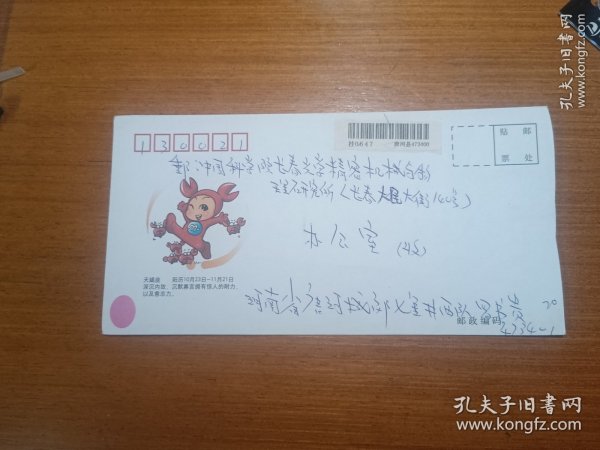 孔夫子旧书网
www.kongfz.com
130021
挂0647 唐河县473400
贴 邮
票 处
邮:中国科学院长春光学精密机械与物
理研究所(长春 大街140号)
办公室 (收)
天蝎座 阳历10月23日~11月21日
深沉内敛、沉默寡言拥有惊人的耐力，
以及意志力。
河南省唐河城郊七里井西队
邮政编码
孔夫子旧书网
www.kongfz.com